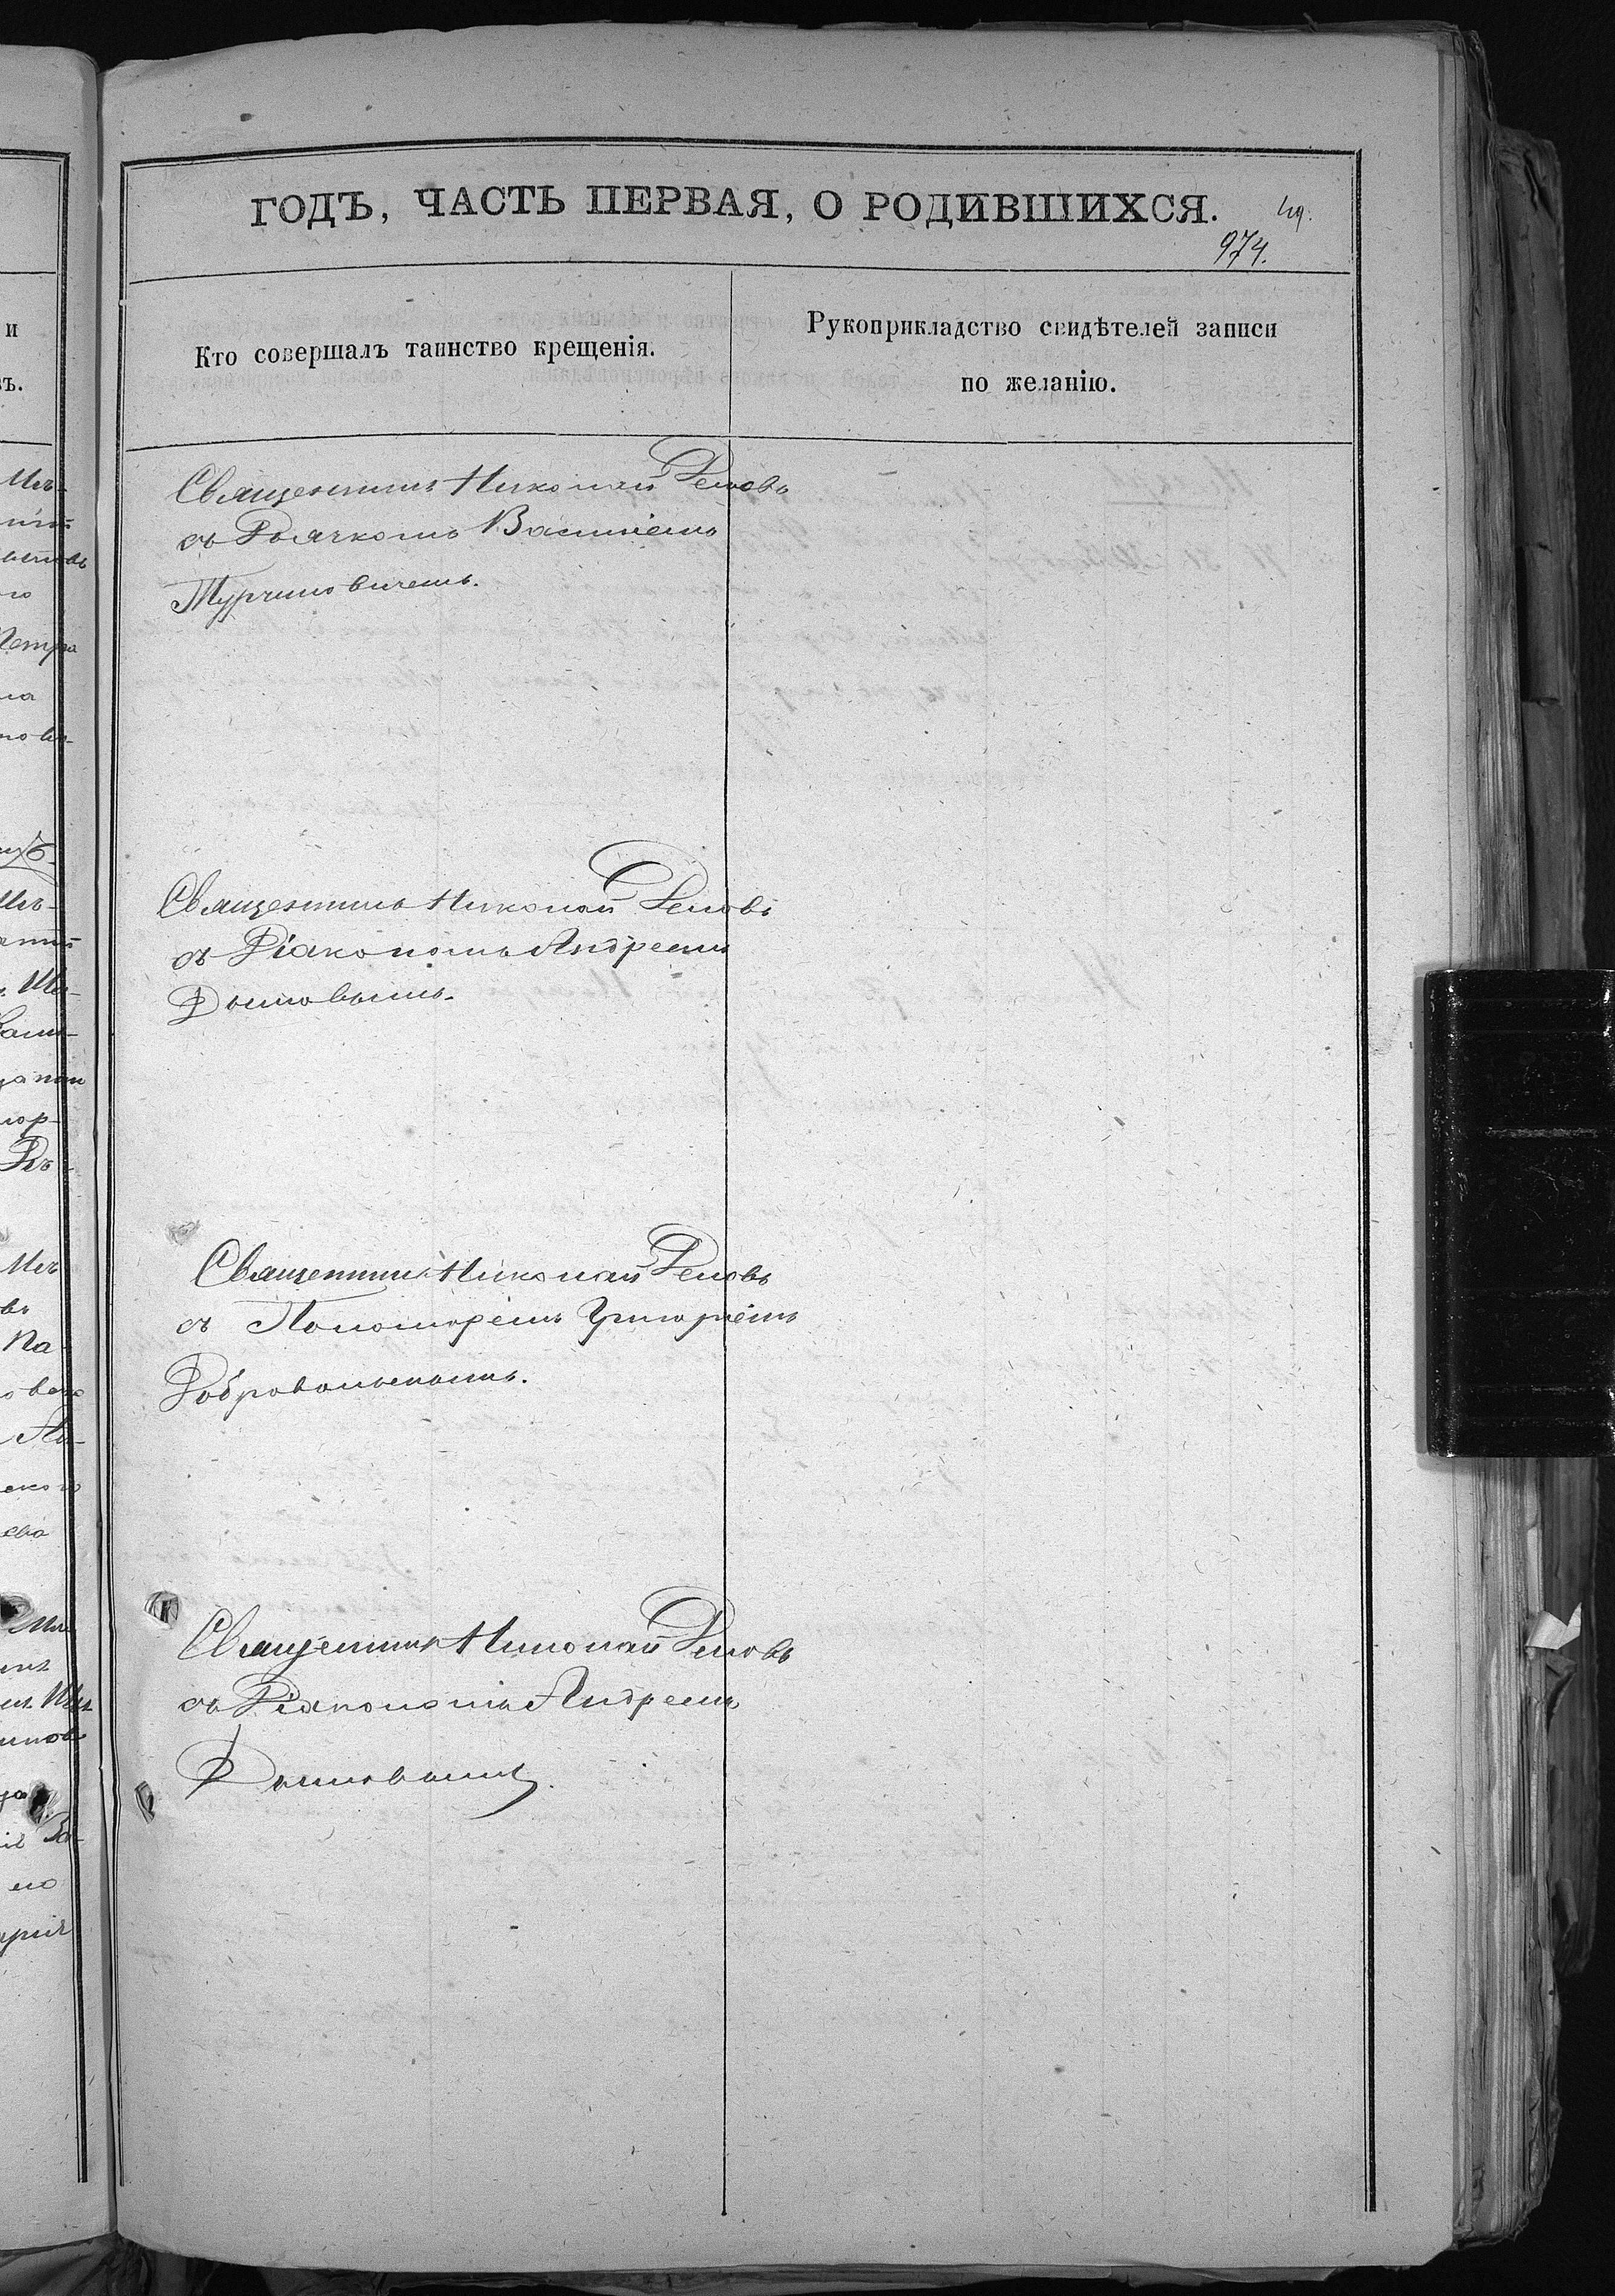 ГОДЪ, ЧАСТЬ ПЕРВАЯ, О РОДИВШИХСЯ.
974.
Кто совершалъ таинство крещенія.
Рукоприкладство свидѣтелей записи
по желанію.
Священникъ Николай Демовъ
съ Дьячкомъ Василіемъ
Турчиновичемъ.
Священникъ Николай Демовъ
съ Діакономъ Андреемъ
Дымовымъ.
Священникъ Николай Демовъ
съ Пономаремъ Григоріемъ
Добровольскимъ.
Священникъ Николай Демовъ
съ Діакономъ Андреемъ
Дымовымъ.